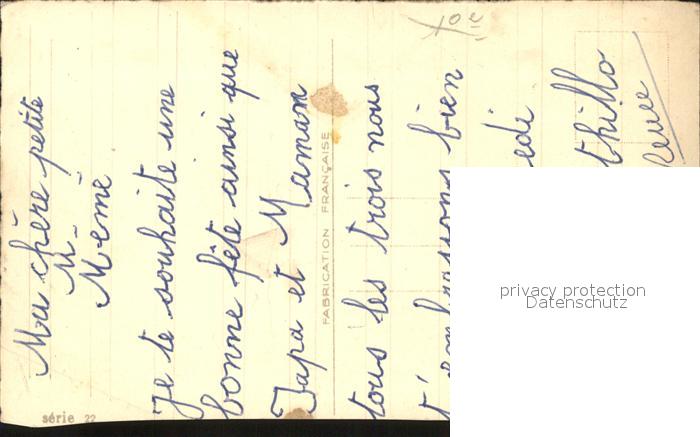 Ma chère petite
M-
Mémé
Je te souhaite une
bonne fête ainsi que
Papa et Maman
FABRICATION FRANÇAISE
tous les trois nous
t'embrassons bien
edi
série 22
privacy protection
Datenschutz